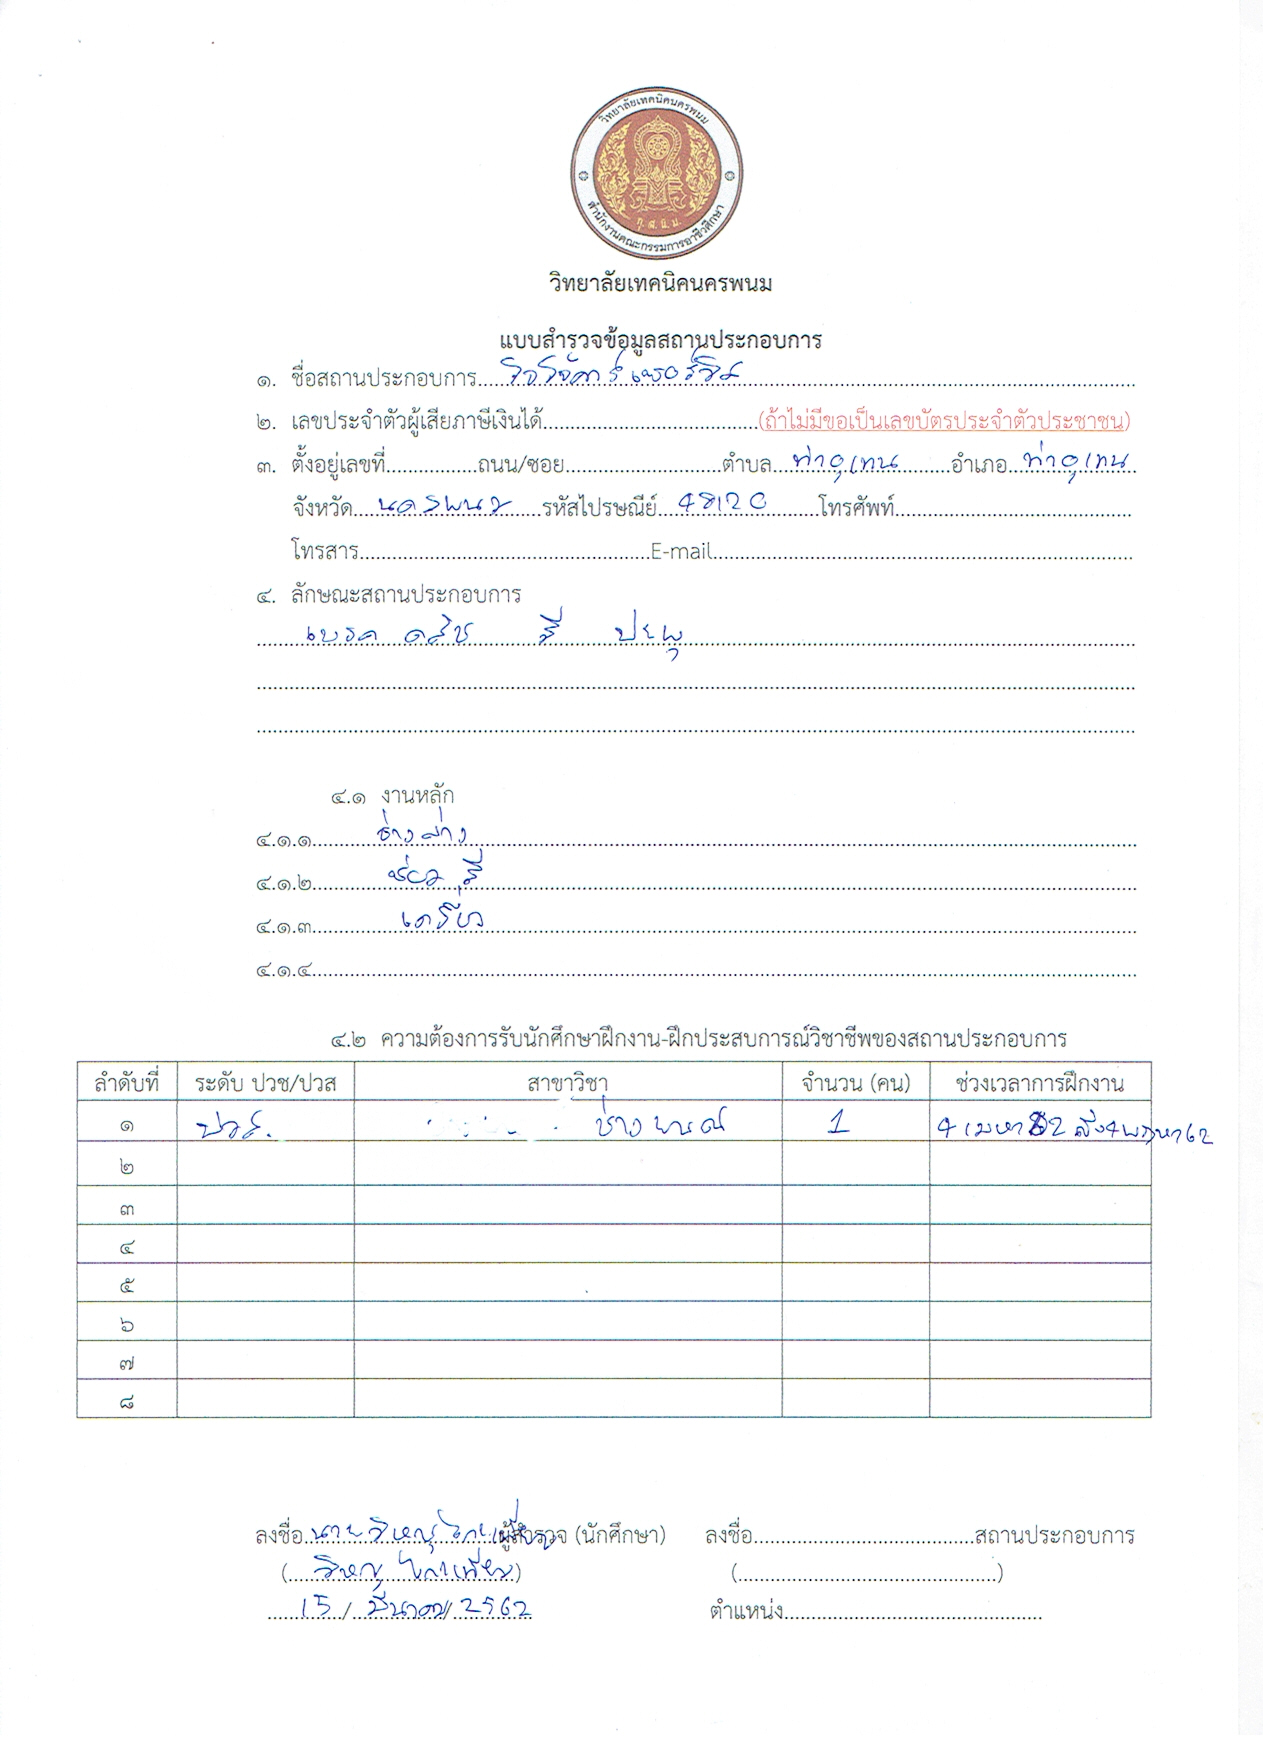 วิทยาลัยเทคนิคนครพนม
สำนักงานคณะกรรมการอาชีวศึกษา
วิทยาลัยเทคนิคนครพนม
แบบสำรวจข้อมูลสถานประกอบการ
๑. ชื่อสถานประกอบการ
๒. เลขประจำตัวผู้เสียภาษีเงินได้ (ถ้าไม่มีขอเป็นเลขบัตรประจำตัวประชาชน)
๓. ตั้งอยู่เลขที่ ถนน/ซอย ตำบล ท่าอุเทน อำเภอ ท่าอุเทน
จังหวัด นครพนม รหัสไปรษณีย์ 48120 โทรศัพท์
โทรสาร E-mail
๔. ลักษณะสถานประกอบการ
เบรค คลัช สี ปะผุ
๔.๑ งานหลัก
๔.๑.๑ ช่างล่าง
๔.๑.๒ ซ่อม สี
๔.๑.๓
๔.๑.๔
๔.๒ ความต้องการรับนักศึกษาฝึกงาน-ฝึกประสบการณ์วิชาชีพของสถานประกอบการ
ลำดับที่ ระดับ ปวช/ปวส สาขาวิชา จำนวน (คน) ช่วงเวลาการฝึกงาน
๑ ปวส. ช่างยนต์ 1
๒
๓
๔
๕
๖
๗
๘
ลงชื่อ ผู้สำรวจ (นักศึกษา) ลงชื่อ สถานประกอบการ
( ) ( )
15 / มีนาคม / 2562 ตำแหน่ง